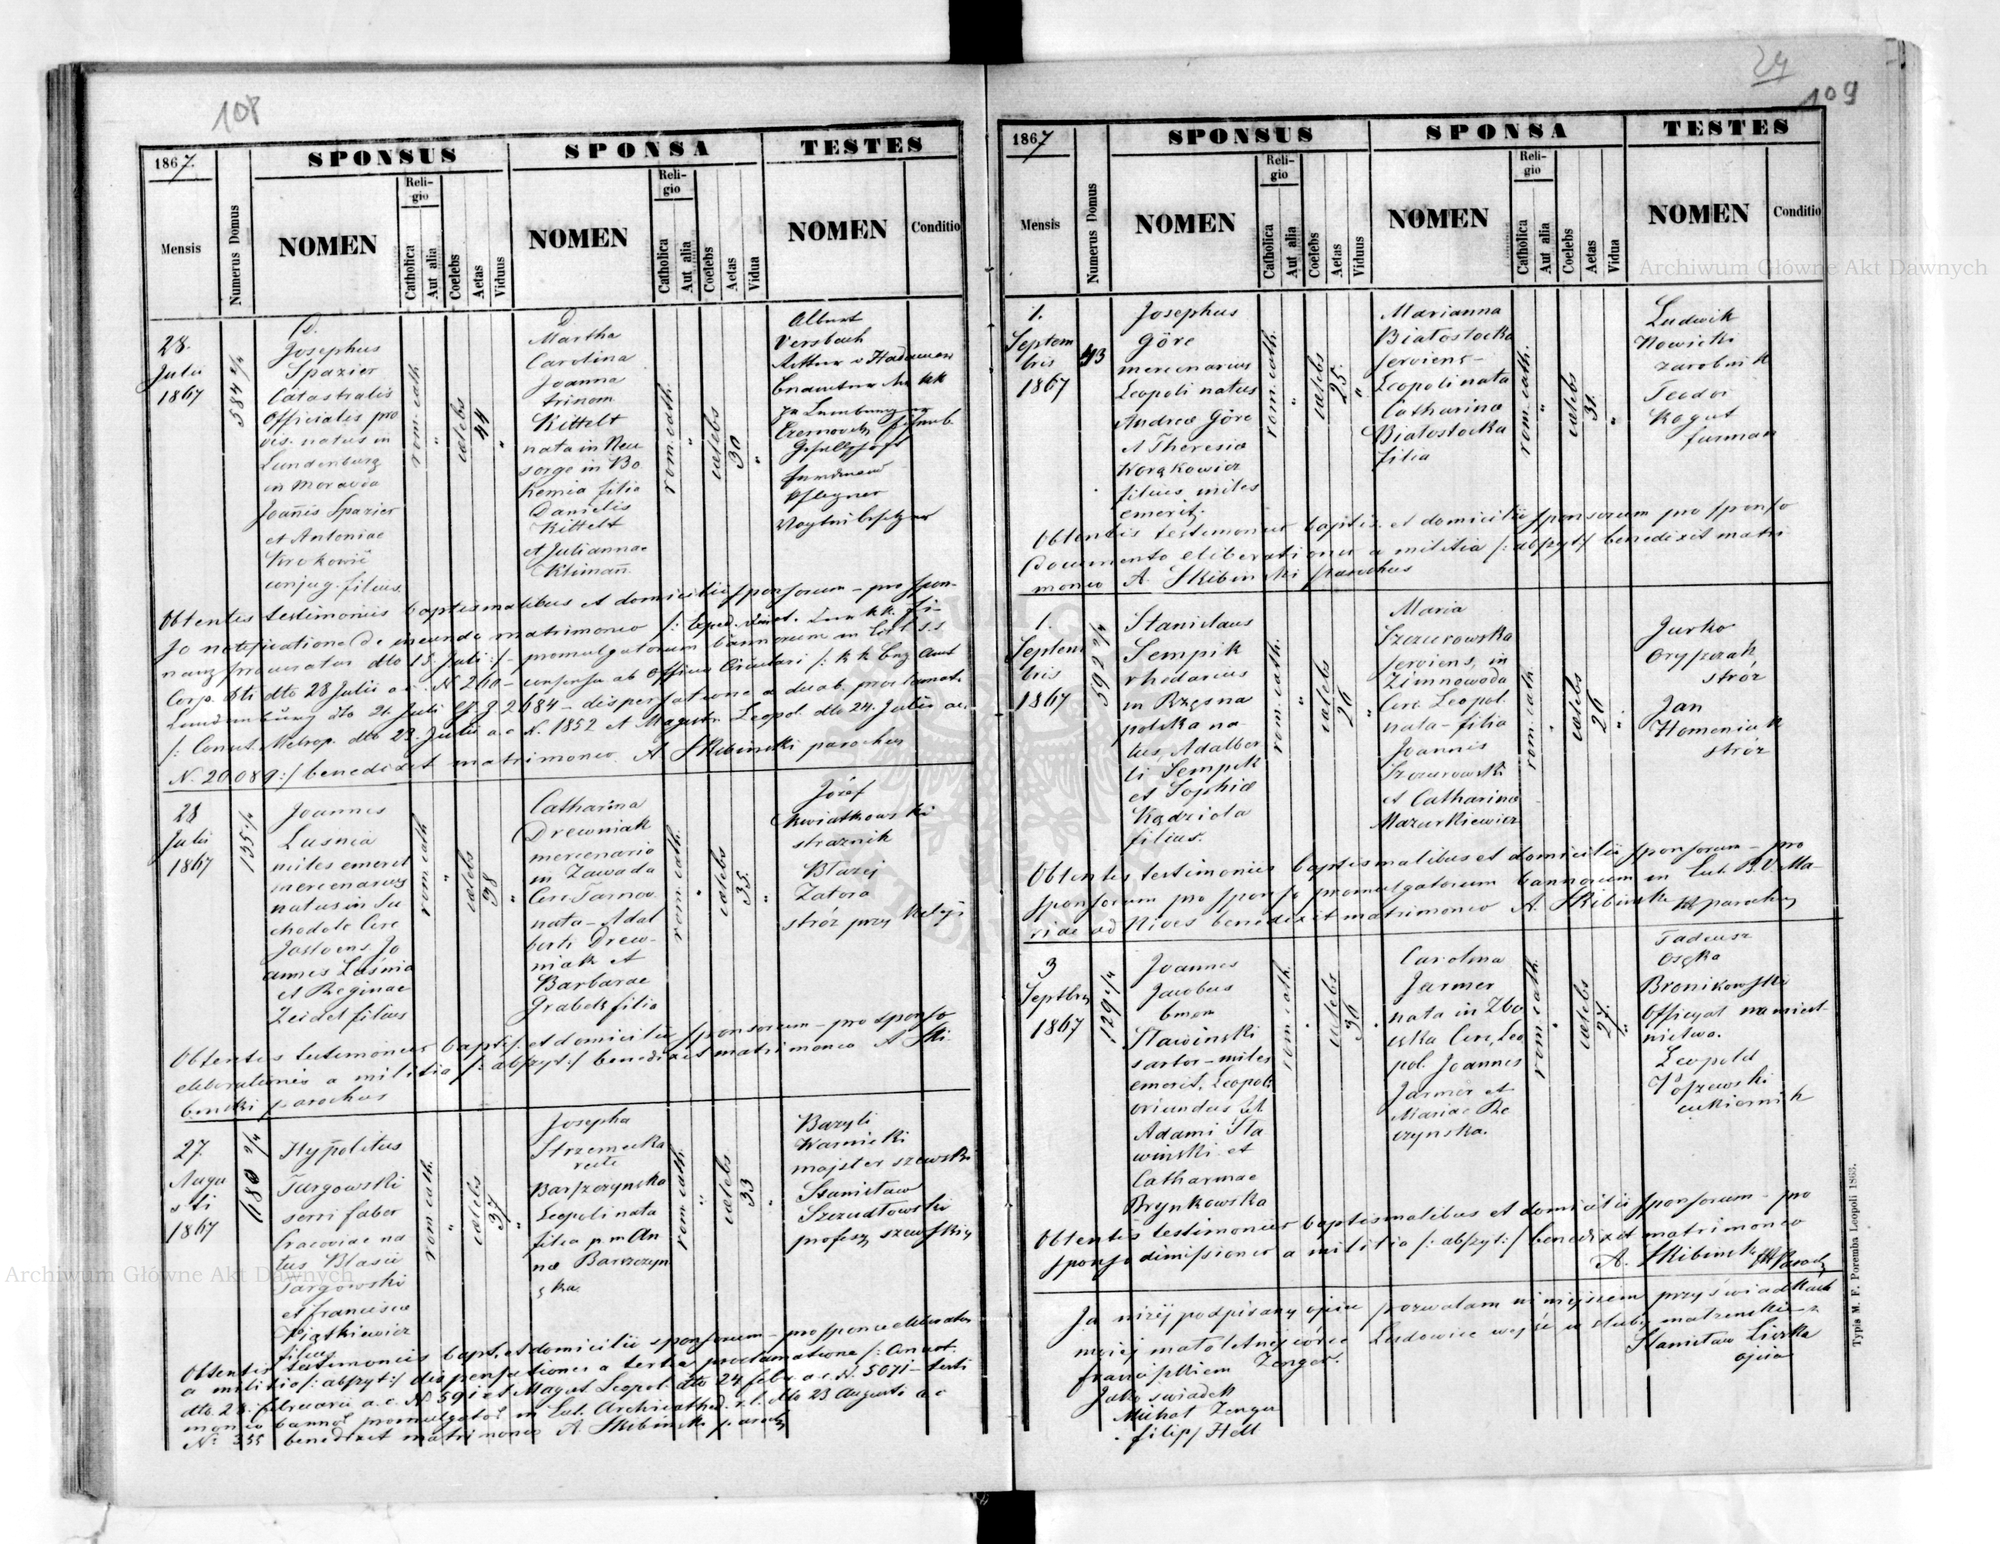 108
1867.
SPONSUS
SPONSA
TESTES
Mensis
Numerus Domus
NOMEN
Religio
Catholica
Aut alia
Coelebs
Aetas
Viduus
NOMEN
Religio
Catholica
Aut alia
Coelebs
Aetas
Vidua
NOMEN
Conditio
28.
Julii
1867
584 2/4
D.
Josephus
Spazier
Catastralis
Officialis pro
vis. natus in
Lundenburg
in Moravia
Joañis Spazier
et Antoniae
conjug. filius.
rom. cath.
"
caelebs
44
"
D
Martha
Carolina
Joanna
trinom
Kittelt
nata in Neu
sorge in Bo
hemia filia
Danielis
Kittelt
et Juliannae
Klimañ
rom. cath.
"
caelebs
30
"
Albert
Versbach
Ritter v Hadamar
Beamter der kk
Lemberg
Czernovitz
Gesellschaft
Obtentis testimoniis baptismalibus et domicilii sponsorum - pro spon-
so notificatione de ineundo matrimonio
nanz procurator dto 15 Julii :/ - promulgatorum bannorum in
Corp. dto 28 Julii a.c. N. 260 - consensu ab Officio Circulari /: k k
Lundenburg dto 21. Juli 2684 - dispensatione a duab. proclamat.
/: Consist. Metrop. dto 23. Julii a.c. N. 1852 et Magistr. Leopol. dto 24. Julii a.c.
N. 20089 :/ benedixit matrimonio. A Skibinski parochus
28
Julii
1867
135 1/4
Joannes
Luśnia
miles emerit
mercenarius
natus in Su
chodole Circ
Jasloens. Jo
annis Luśnia
et Reginae
Zeidel filius
rom cath
"
caelebs
38
"
Catharina
Drewniak
mercenaria
in Zawada
Circ Tarnov
nata - Adal
berti Drew-
niak et
Barbarae
Grabek filia
rom. cath.
"
caelebs
35.
"
Józef
Kwiatkowski
straznik
Błazej
Zatora
stróz przy kolei
Obtentis testimoniis baptis. et domicilii sponsorum - pro sponso
eliberationis a militia /: abszyt :/ benedixit matrimonio A Ski
binski parochus
27.
Augu
sti
1867
680 2/4
Hypolitus
Targowski
serri faber
Cracoviae na
tus Blasii
Targowski
et Francisca
Piątkiewicz
filius
rom cath.
"
caelebs
37
"
Josepha
Strzemecka
recte
Barszczynska
Leopoli nata
filia p. m An
nae Barszczyn
ska.
rom cath.
"
caelebs
33
"
Bazyli
Warnicki
majster szewski
Stanisław
Szczudłowski
profesz szewskij
Obtentis testimoniis bapt. et domicilii sponsorum - pro sponso eliberation
a militia /: abszyt :/ dispensationes a tertia proclamatione /: Consist.
dto 28. februarii a.c. N 591 et Magist Leopol. dto 24 febr a.c. N. 5071 - testi
monio bannor promulgator in Eccl. Archicathed. r.l. dto 23 Augusti a c
N: 355 benedixit matrimonio A Skibinski paroch
24
109
1867
SPONSUS
SPONSA
TESTES
Mensis
Numerus Domus
NOMEN
Religio
Catholica
Aut alia
Coelebs
Aetas
Viduus
NOMEN
Religio
Catholica
Aut alia
Coelebs
Aetas
Vidua
NOMEN
Conditio
1.
Septem
bris
1867
43
Josephus
Göre
mercenarius
Leopoli natus
Andreae Göre
et Theresiae
Worąkowicz
filius, miles
emerit.
rom. cath.
"
caelebs
25.
"
Marianna
Białostocka
serviens -
Leopoli nata
Catharina
Białostocka
filia
rom. cath.
"
caelebs
31.
"
Ludwik
Nowicki
zarobnik
Teodor
Kogut
furman
Obtentis testimoniis baptis. et domicilii sponsorum pro sponso
Documento eliberationis a militia /: abszyt :/ benedixit matri
monio A. Skibinski parochus
1.
Septem
bris
1867
592 2/4
Stanislaus
Sempik
rhedarius
in Brzęsna
polska na
tus, Adalber
ti Sempik
et Sophiae
Kądziola
filius.
rom. cath.
"
caelebs
26
"
Maria
Szczurowska
serviens, in
Zimnowoda
Circ Leopol.
nata - filia
Joannis
Szczurowski
et Catharinae
Mazurkiewicz
rom. cath.
"
caelebs
26
"
Jurko
Oryszczak
stróż
Jan
Homeniuk
stróz
Obtentis testimoniis baptismalibus et domicilii sponsorum - pro
sponsorum pro sponso promulgatorum bannorum in Eccl. B. V. Ma-
riae ad Nives benedixit matrimonio A. Skibinski parochus
3
Septbris
1867
129 1/4
Joannes
Jacobus
binom
Stawinski
sartor - miles
emerit. Leopoli
oriundus fil
Adami Sta
winski et
Catharinae
Brynkowska
rom cath.
"
caelebs
36
"
Carolina
Jarmer
nata in Zbo
iska Circ. Leo
pol. Joannes
Jarmer et
Mariae Re
czynska.
rom. cath.
"
caelebs
27.
"
Tadeusz
Osęka
Bronikowski
Officyał namiest-
nictwa.
Leopold
cukiernik
Obtentis testimoniis baptismalibus et domicilii sponsorum - pro
sponso dimissionis a militia /: abszyt :/ benedixit matrimonio
A. Skibinski Paroch
Ja nizéj podpisany ojciec pozwalam niniejszem przy świadkach
mojéj małoletniéj córce Ludowice wejść w sluby malzenskie z
franciszkiem Zenger.
Stanisław Liszka
ojciec
Jako swiadek
Michał Zenger
filip Hell
Typis M. F. Poremba Leopoli 1863.
Archiwum Główne Akt Dawnych
Archiwum Główne Akt Dawnych